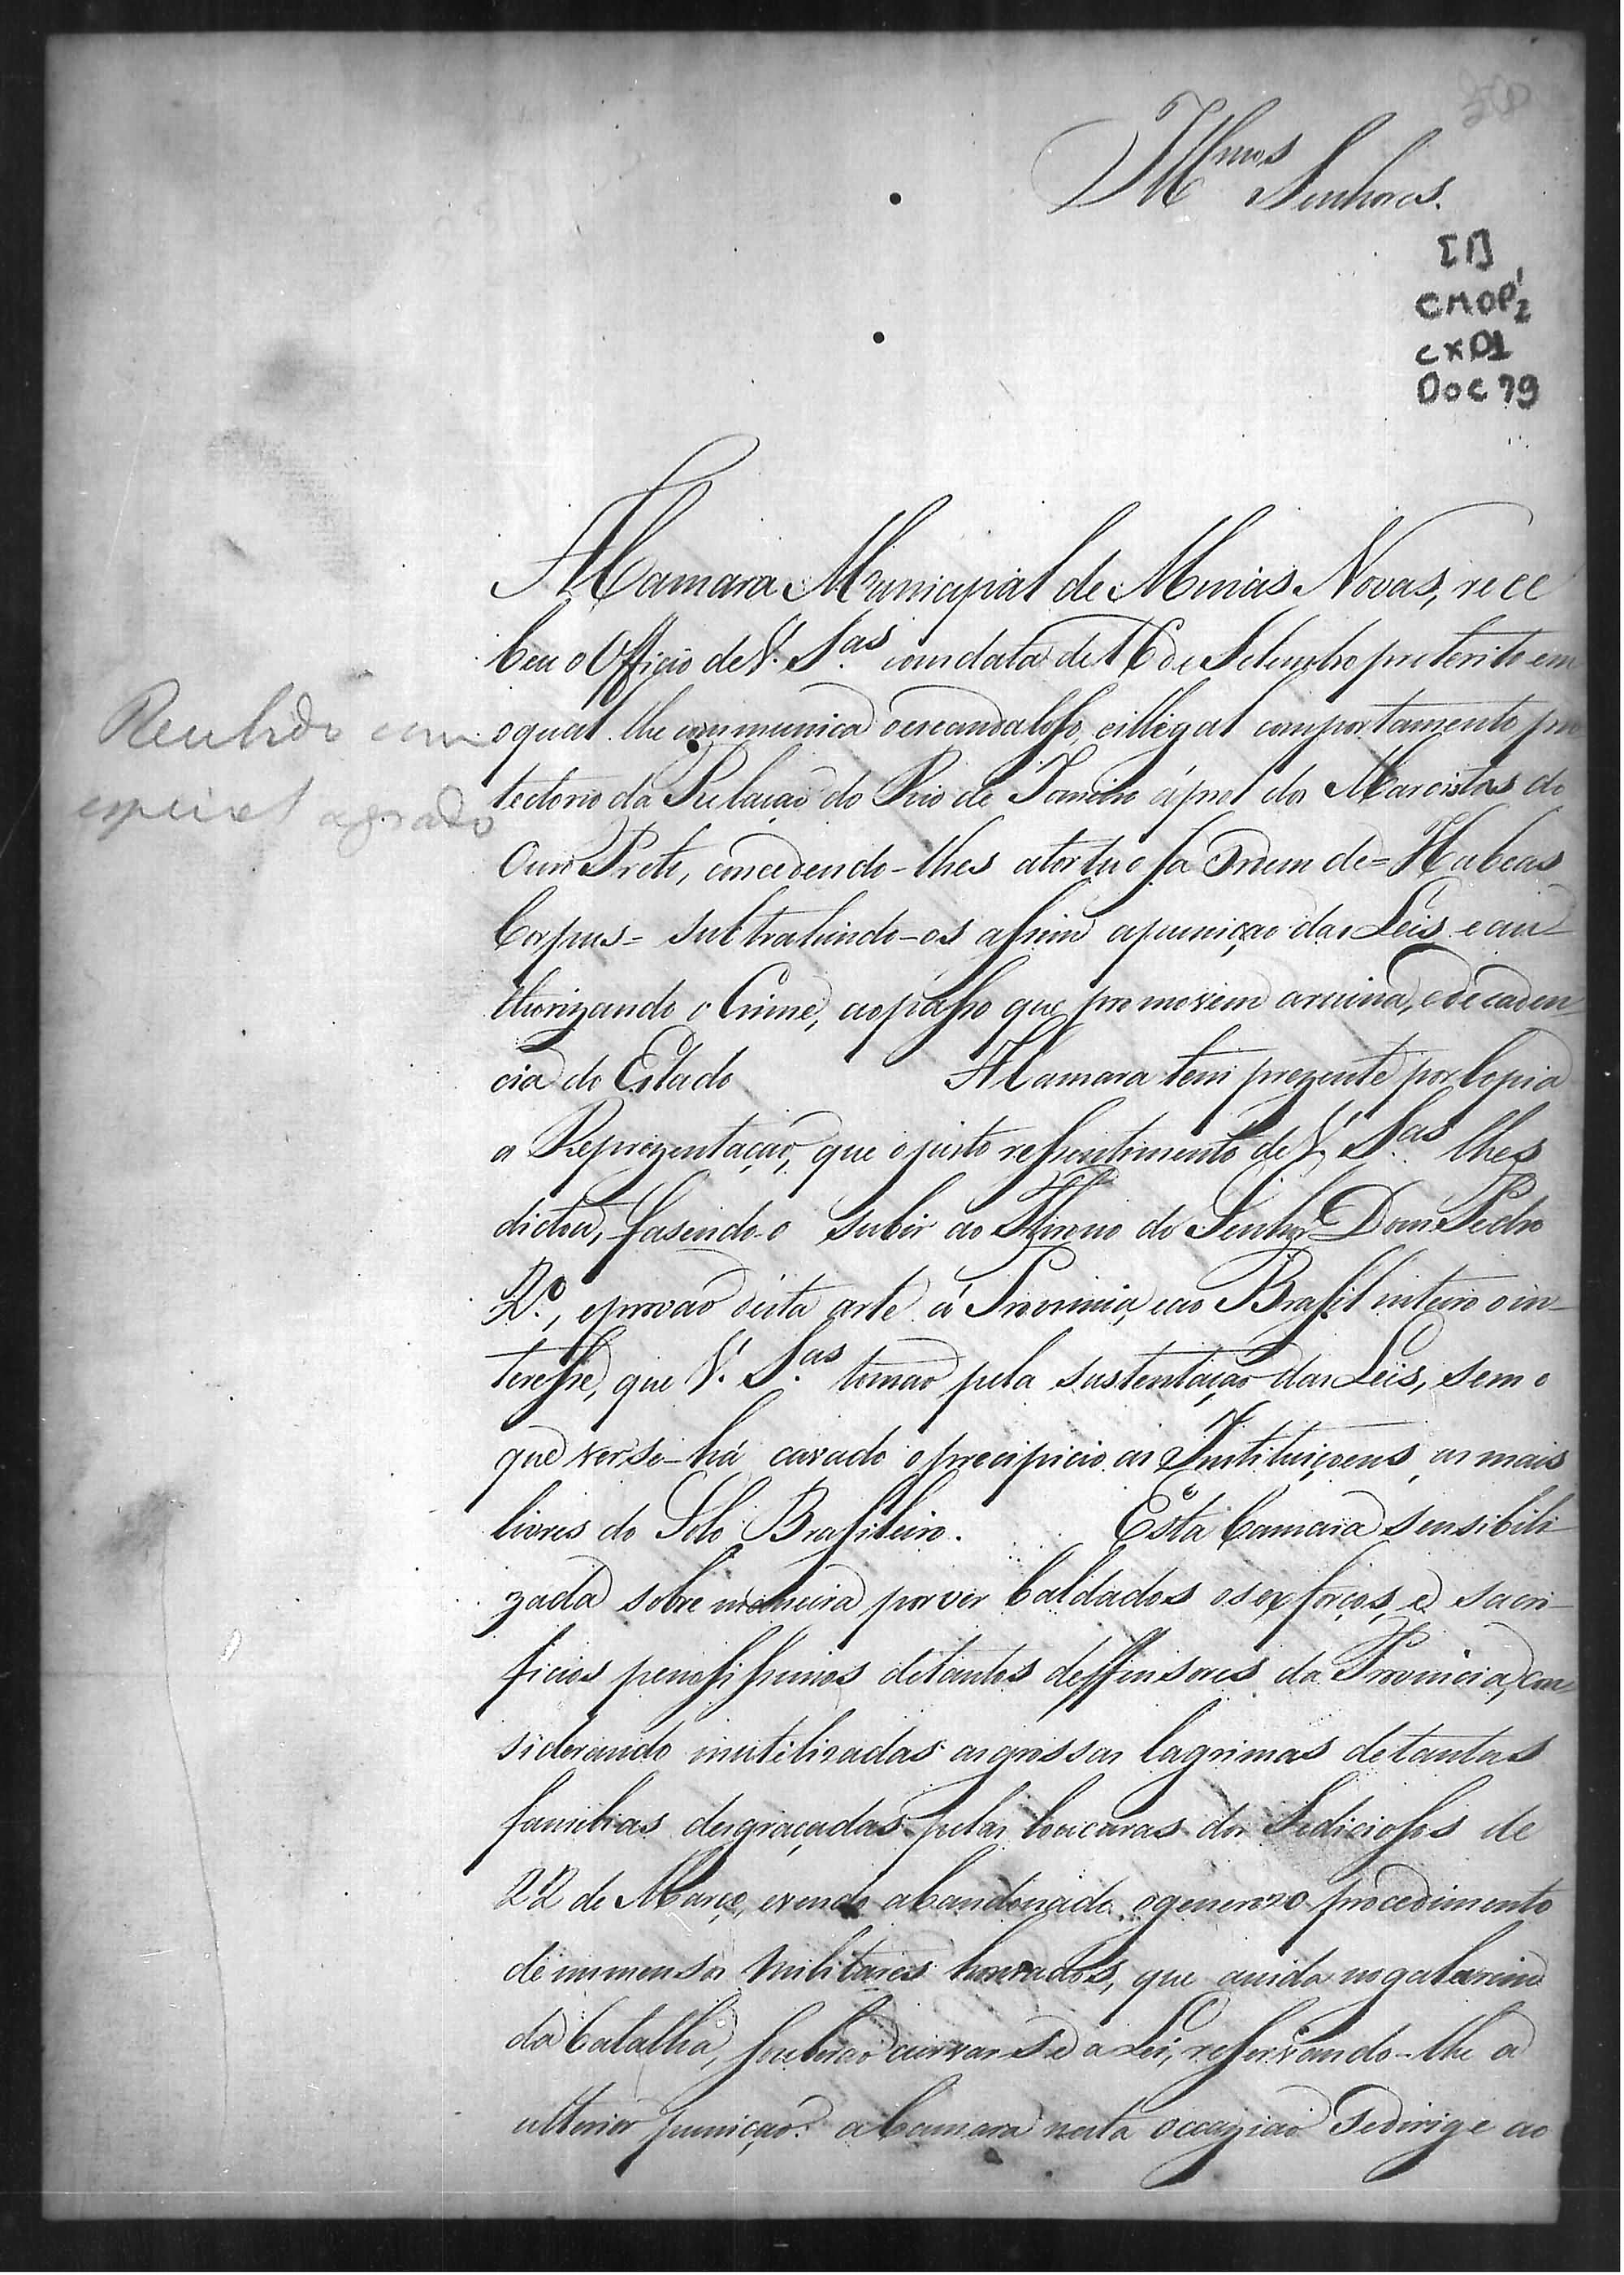 Illmos Senhores.
IB
CMOP 1/2
CX 01
Doc 79
A Camara Municipal de Minas Novas, rece
beu o Officio de V. S.as com data de 16 de Setembro preterito em
o qual lhe communica o escandaloso, e illegal comportamento pro
tectorio da Relação do Rio de Janeiro á prol dos Marcistas do
Ouro Preto, concedendo-lhes a tortuosa Ordem de = Habeas
Corpus = subtrahindo-os assim a punição das Leis e au-
thorizando o Crime, ao passo que promovem a ruina, e decaden
cia do Estado A Camara tem prezente por Copia
a Reprezentação, que o justo ressentimento de V. S.as lhes
dictou, fasendo-o subir ao Throno do Senhor Dom Pedro
2.º, e provão désta arte á Provincia, e ao Brasil inteiro o in-
teresse, que V. S.as tomão pela sustentação das Leis, sem o
que ver-se-há cavado o precipicio as Instituiçoens as mais
livres do Solo Brasileiro. Esta Camara sensibili-
zada sobre maneira por ver baldados os exforços, e sacri-
ficios penosissimos de tantos deffensores da Provincia, con-
siderando inutilisadas as grossas lagrimas de tantas
familias desgraçadas pelas loucuras dos Sediciosos de
22 de Março, e vendo abandonado o generozo procedimento
de immensos Militares honrados, que ainda no galarim
da batalha, souberão curvar-se a Lei, reservando-lhe a
ulterior punição: a Camara nesta occazião se dirige ao
Recebido com
especial agrado